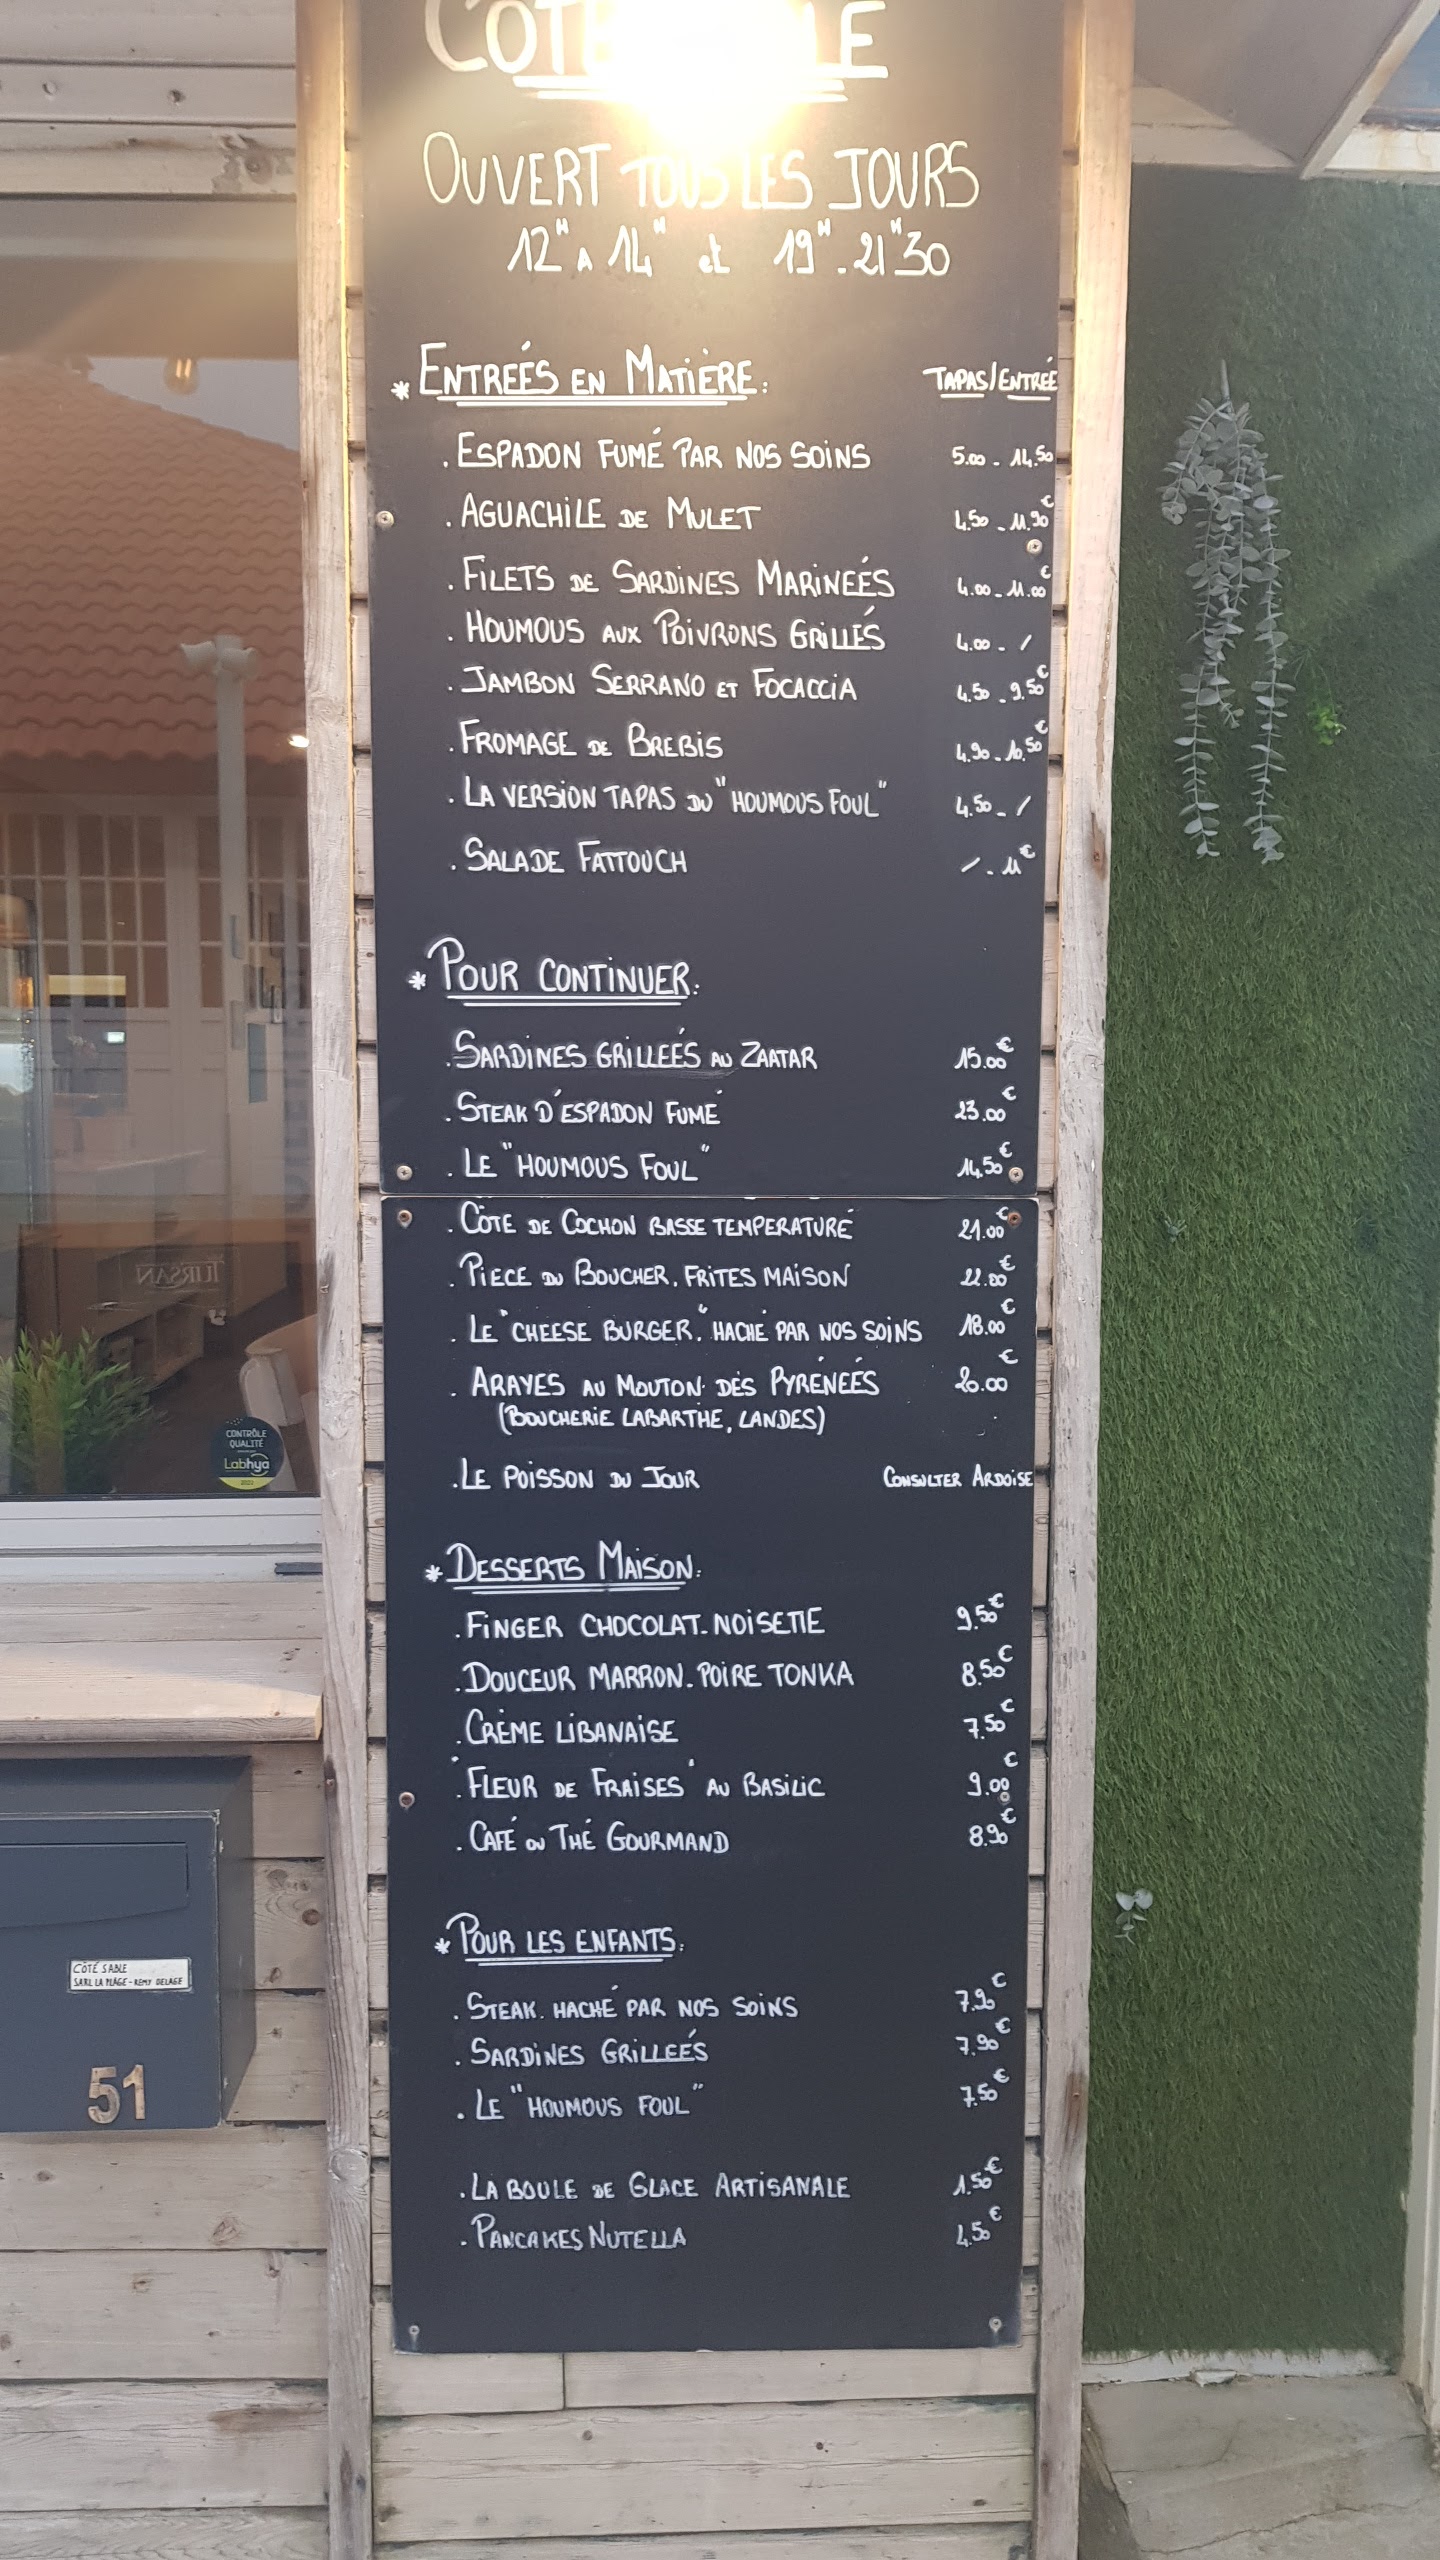 CÔTÉ
OUVERT TOUS LES JOURS
12H A 14H et 19H - 21H30
* ENTREÉS EN MATIÈRE: TAPAS/ENTREÉ
. ESPADON FUMÉ PAR NOS SOINS 5.00 - 14.50
. AGUACHILE DE MULET 4.50 - 11.90€
. FILETS DE SARDINES MARINEÉS 4.00 - 11.00€
. HOUMOUS AUX POIVRONS GRILLÉS 4.00 - /
. JAMBON SERRANO ET FOCACCIA 4.50 - 9.50€
. FROMAGE DE BREBIS 4.90 - 10.50€
. LA VERSION TAPAS DU "HOUMOUS FOUL" 4.50 - /
. SALADE FATTOUCH / - 11€
* POUR CONTINUER:
. SARDINES GRILLEÉS AU ZAATAR 15.00€
. STEAK D'ESPADON FUMÉ 23.00€
. LE "HOUMOUS FOUL" 14.50€
. CÔTE DE COCHON BASSE TEMPERATURE 21.00€
. PIECE DU BOUCHER. FRITES MAISON 22.00€
. LE "CHEESE BURGER". HACHÉ PAR NOS SOINS 18.00€
. ARAYES AU MOUTON DES PYRÉNEÉS 20.00€
(BOUCHERIE LABARTHE, LANDES)
. LE POISSON DU JOUR CONSULTER ARDOISE
* DESSERTS MAISON:
. FINGER CHOCOLAT-NOISETTE 9.50€
. DOUCEUR MARRON-POIRE TONKA 8.50€
. CRÈME LIBANAISE 7.50€
. "FLEUR DE FRAISES" AU BASILIC 9.00€
. CAFÉ OU THÉ GOURMAND 8.90€
* POUR LES ENFANTS:
. STEAK HACHÉ PAR NOS SOINS 7.90€
. SARDINES GRILLEÉS 7.90€
. LE "HOUMOUS FOUL" 7.50€
. LA BOULE DE GLACE ARTISANALE 1.50€
. PANCAKES NUTELLA 4.50€
TURSAN
CONTRÔLE
QUALITÉ
Labhya
CÔTÉ SABLE
SARL LA PLAGE - REMY DELAGE
51